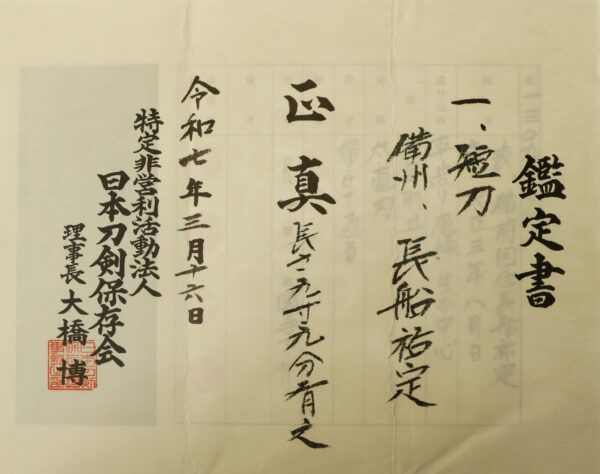 鑑定書
一、短刀
備州、長船祐定
正真 長さ九寸九分有之
令和七年三月十六日
特定非営利活動法人
日本刀剣保存会
理事長 大橋 博